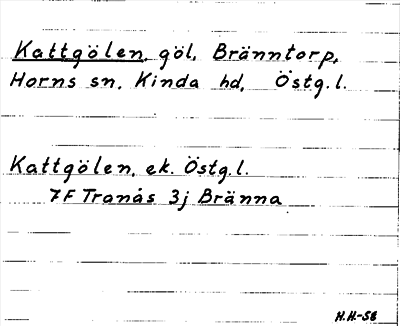 Kattgölen, göl, Bränntorp,
Horns sn, Kinda hd, Östg.l.
Kattgölen, ek. Östg.l.
7F Tranås 3j Bränna
H.H-58